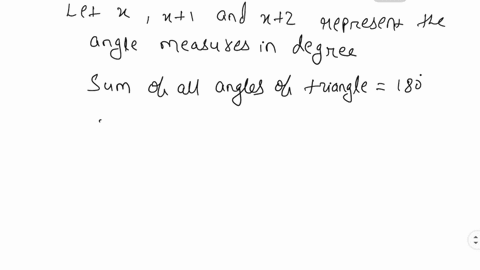 Let x, x+1 and x+2 represent the
angle measures in degree
Sum of all angles of triangle = 180°